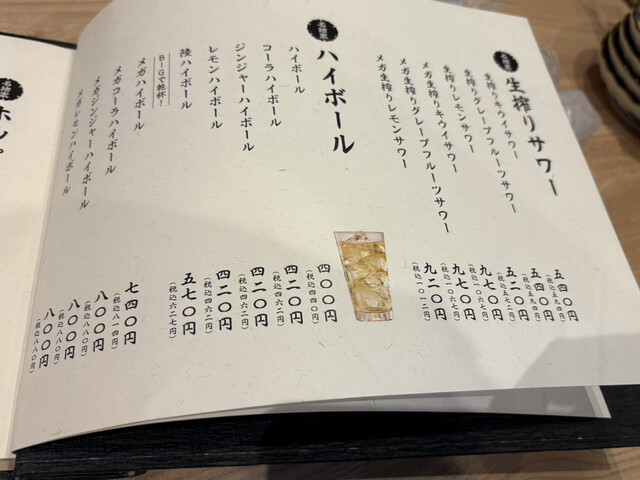 生搾りサワー
生搾りキウイサワー 五四〇円
(税込五九四円)
生搾りグレープフルーツサワー 五四〇円
(税込五九四円)
生搾りレモンサワー 五二〇円
(税込五七二円)
メガ生搾りキウイサワー 九七〇円
(税込一〇六七円)
メガ生搾りグレープフルーツサワー 九七〇円
(税込一〇六七円)
メガ生搾りレモンサワー 九二〇円
(税込一〇一二円)
ハイボール
ハイボール 四〇〇円
(税込四四〇円)
コーラハイボール 四二〇円
(税込四六二円)
ジンジャーハイボール 四二〇円
(税込四六二円)
レモンハイボール 四二〇円
(税込四六二円)
陸ハイボール 五七〇円
(税込六二七円)
BIGで乾杯!
メガハイボール 七四〇円
(税込八一四円)
メガコーラハイボール 八〇〇円
(税込八八〇円)
メガジンジャーハイボール 八〇〇円
(税込八八〇円)
メガレモンハイボール 八〇〇円
(税込八八〇円)